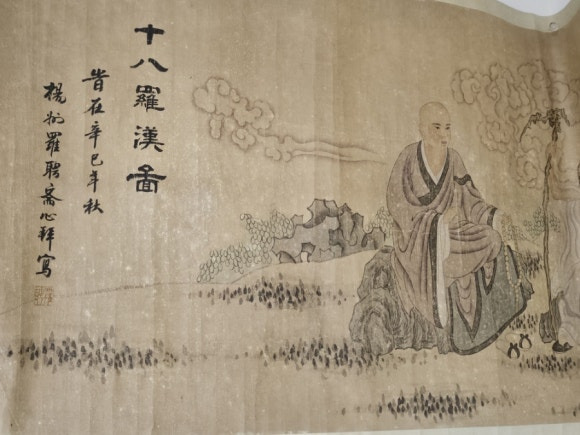 十八羅漢圖
旹在辛巳年秋
楊州羅聘斋心拜寫